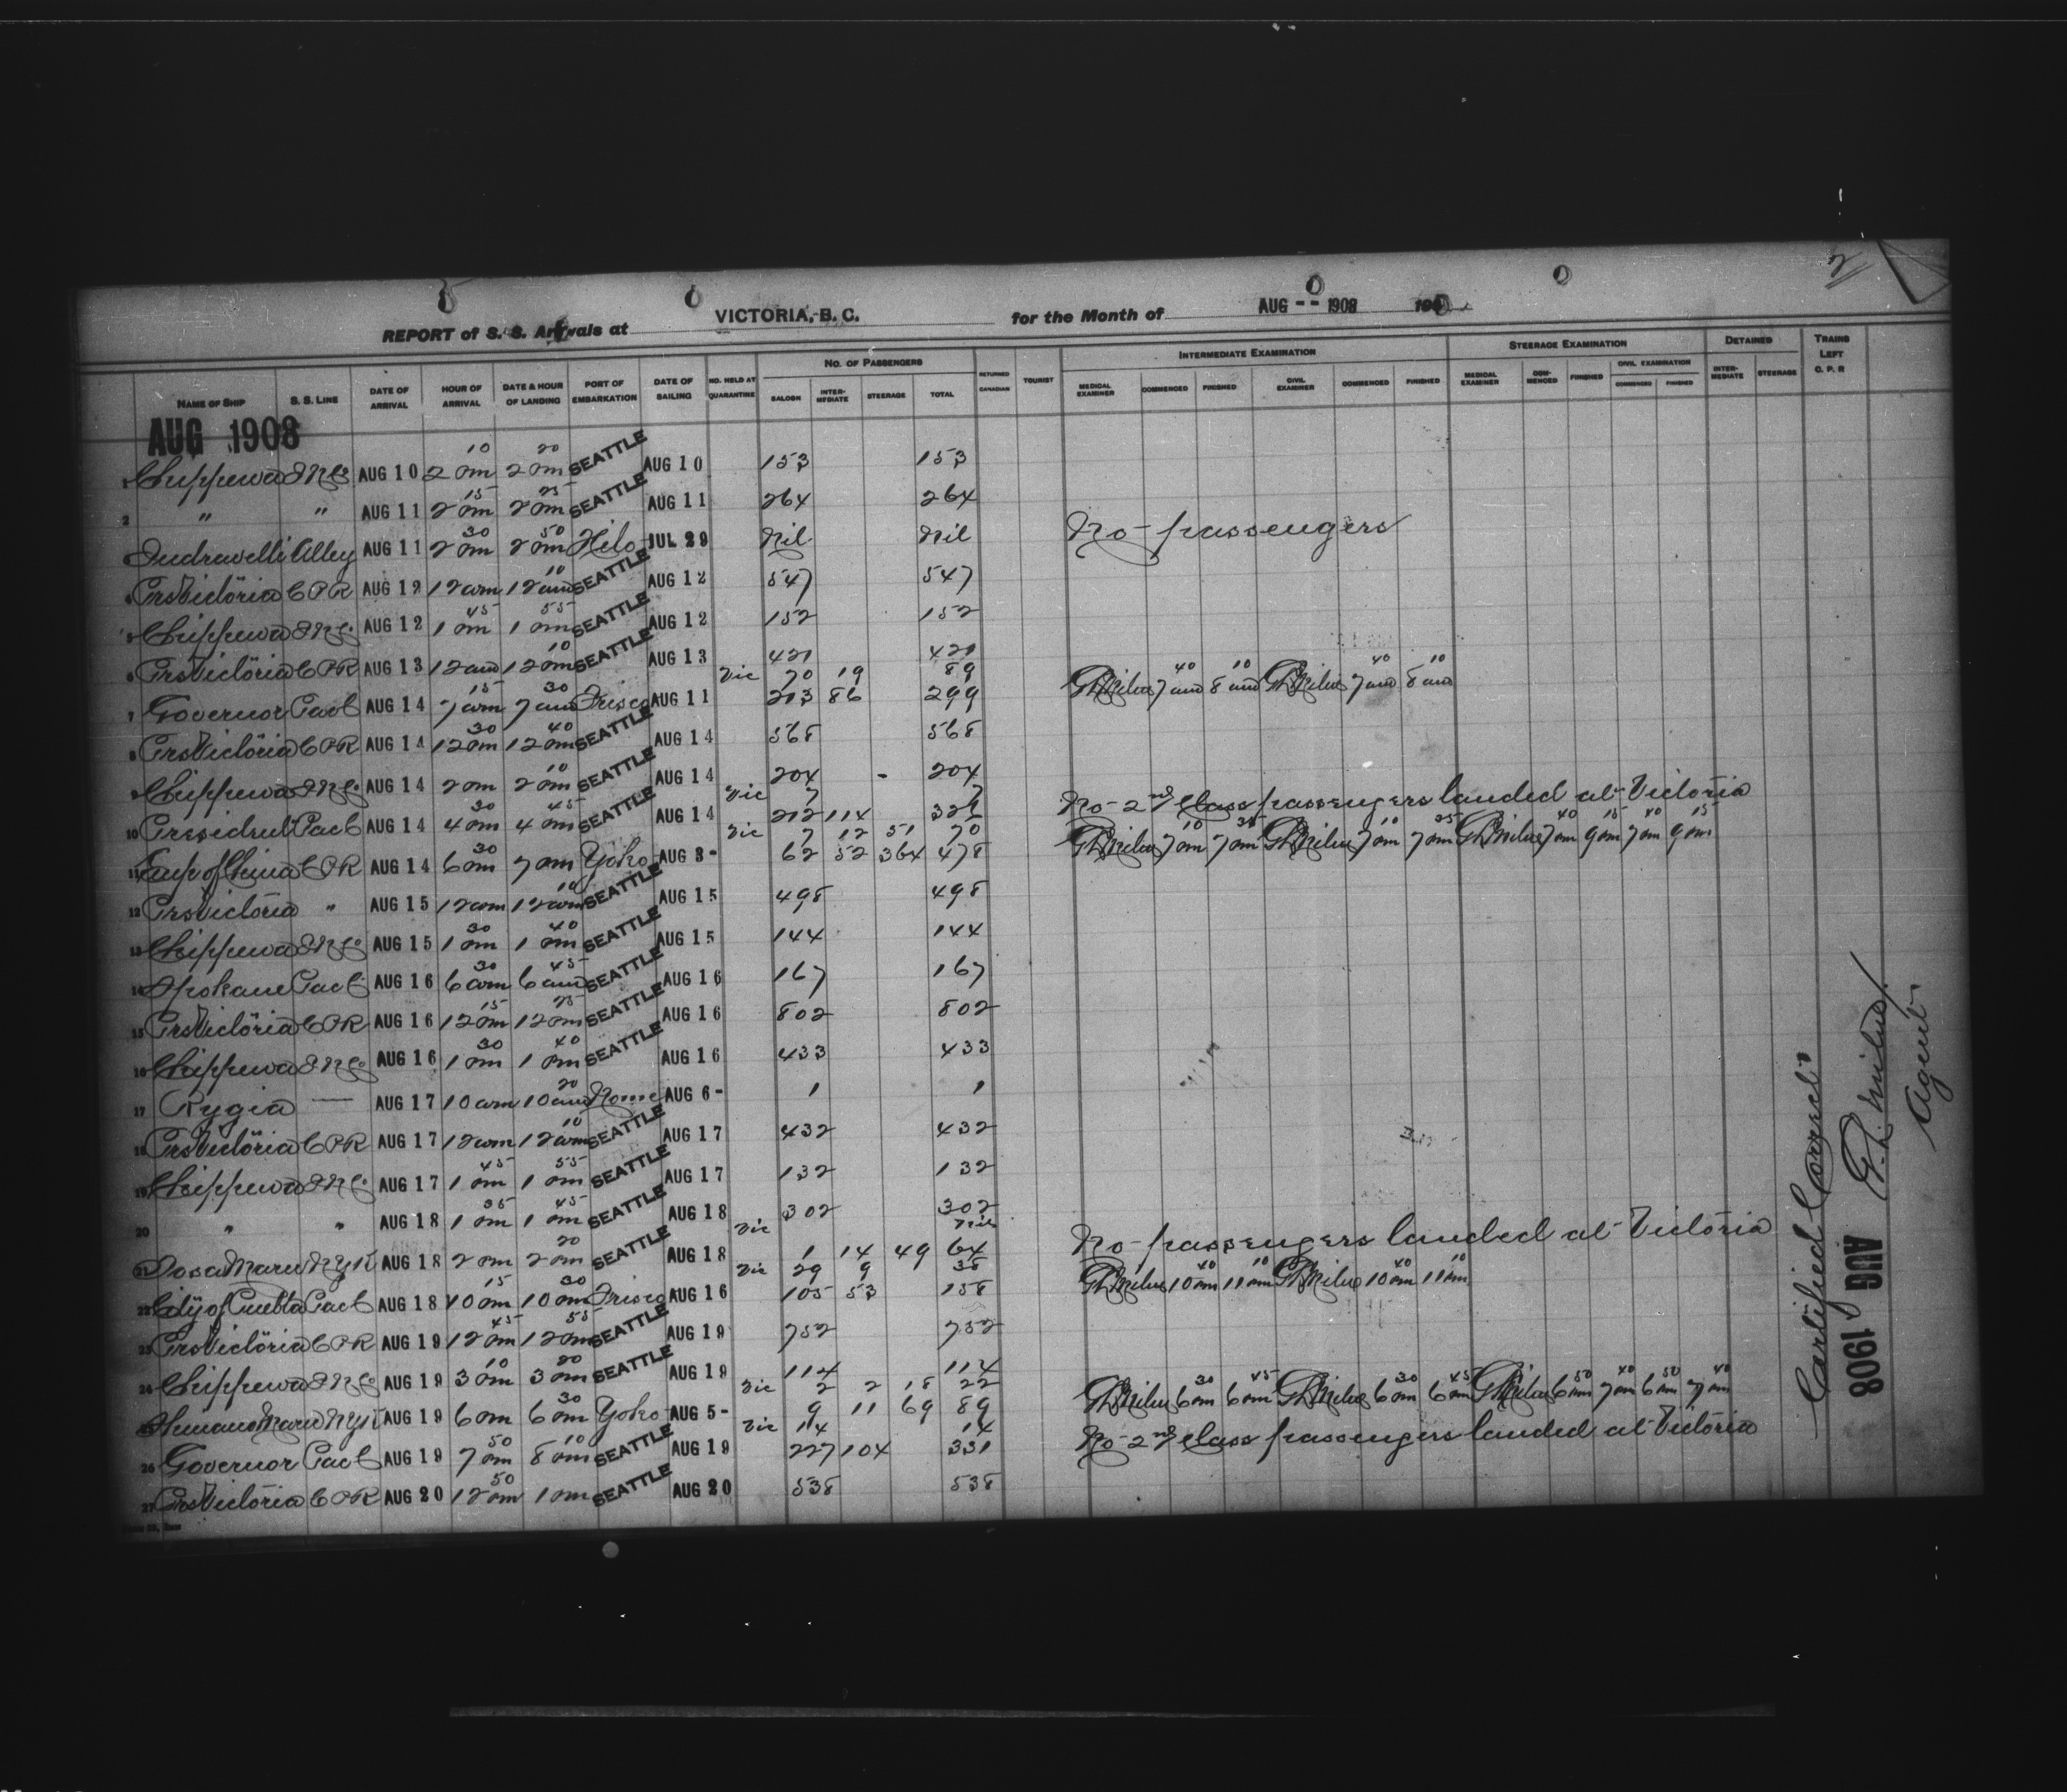 2
REPORT of S. S. Arrivals at VICTORIA, B. C. for the Month of AUG -- 1908 190
NAME OF SHIP S. S. LINE DATE OF ARRIVAL HOUR OF ARRIVAL DATE & HOUR OF LANDING PORT OF EMBARKATION DATE OF SAILING NO. HELD AT QUARANTINE NO. OF PASSENGERS SALOON INTERMEDIATE STEERAGE TOTAL RETURNED CANADIAN TOURIST INTERMEDIATE EXAMINATION MEDICAL EXAMINER COMMENCED FINISHED CIVIL EXAMINER COMMENCED FINISHED STEERAGE EXAMINATION MEDICAL EXAMINER COMMENCED FINISHED CIVIL EXAMINATION COMMENCED FINISHED DETAINED INTERMEDIATE STEERAGE TRAINS LEFT C. P. R
AUG 1908
1 Chippewa INCo AUG 10 2 10 pm 2 20 pm SEATTLE AUG 10 153 153
2 " " AUG 11 2 15 pm 2 25 pm SEATTLE AUG 11 264 264
Indravelli Alley AUG 11 2 30 pm 2 50 pm Hilo JUL 29 Nil Nil No passengers
4 PrsVictoria CPR AUG 12 12 am 12 10 am SEATTLE AUG 12 547 547
5 Chippewa INCo AUG 12 1 45 pm 1 55 pm SEATTLE AUG 12 152 152
6 PrsVictoria CPR AUG 13 12 am 12 10 pm SEATTLE AUG 13 421 421
Vic 70 19 89
7 Governor PacC AUG 14 7 15 am 7 30 am Frisco AUG 11 213 86 299 GLMilne 7 40 am 8 10 am GLMilne 7 40 am 8 10 am
8 PrsVictoria CPR AUG 14 12 30 pm 12 40 pm SEATTLE AUG 14 568 568
9 Chippewa INCo AUG 14 2 pm 2 10 pm SEATTLE AUG 14 204 - 204
Vic 7 7
10 President PacC AUG 14 4 30 pm 4 45 pm SEATTLE AUG 14 212 114 326 No 2nd Class passengers landed at Victoria
Vic 7 12 51 70
11 Emp of China CPR AUG 14 6 30 pm 7 pm Yoko AUG 3- 62 52 364 478 GLMilne 7 10 pm 7 35 pm GLMilne 7 10 pm 7 35 pm GLMilne 7 40 pm 9 15 pm 7 40 pm 9 15 pm
12 PrsVictoria " AUG 15 12 am 12 10 am SEATTLE AUG 15 498 498
13 Chippewa INCo AUG 15 1 30 pm 1 40 pm SEATTLE AUG 15 144 144
14 Spokane PacC AUG 16 6 30 am 6 45 am SEATTLE AUG 16 167 167
15 PrsVictoria CPR AUG 16 12 15 pm 12 25 pm SEATTLE AUG 16 802 802
16 Chippewa INCo AUG 16 1 30 pm 1 40 pm SEATTLE AUG 16 433 433
17 Rygia — AUG 17 10 am 10 20 am Nome AUG 6- 1 1
18 PrsVictoria CPR AUG 17 12 am 12 10 am SEATTLE AUG 17 432 432
19 Chippewa INCo AUG 17 1 45 pm 1 55 pm SEATTLE AUG 17 132 132
20 " " AUG 18 1 35 pm 1 45 pm SEATTLE AUG 18 302 302
Vic Nil
21 Tosa Maru NYK AUG 18 2 pm 2 20 pm SEATTLE AUG 18 1 14 49 64 No passengers landed at Victoria
Vic 29 9 38
22 City of Puebla PacC AUG 18 10 15 pm 10 30 pm Frisco AUG 16 105 53 158 GLMilne 10 40 pm 11 10 pm GLMilne 10 40 pm 11 10 pm
23 PrsVictoria CPR AUG 19 12 45 pm 12 55 pm SEATTLE AUG 19 752 752
24 Chippewa INCo AUG 19 3 10 pm 3 20 pm SEATTLE AUG 19 114 114
Vic 2 2 18 22
25 Shinano Maru NYK AUG 19 6 pm 6 30 pm Yoko AUG 5- 9 11 69 89 GLMilne 6 30 pm 6 45 pm GLMilne 6 30 pm 6 45 pm GLMilne 6 50 pm 7 40 pm 6 50 pm 7 40 pm
Vic 14 14
26 Governor PacC AUG 19 7 50 pm 8 10 pm SEATTLE AUG 19 227 104 331 No 2nd Class passengers landed at Victoria
27 PrsVictoria CPR AUG 20 12 50 pm 1 pm SEATTLE AUG 20 538 538
Certified Correct
AUG 1908
G.L. Milne
Agent